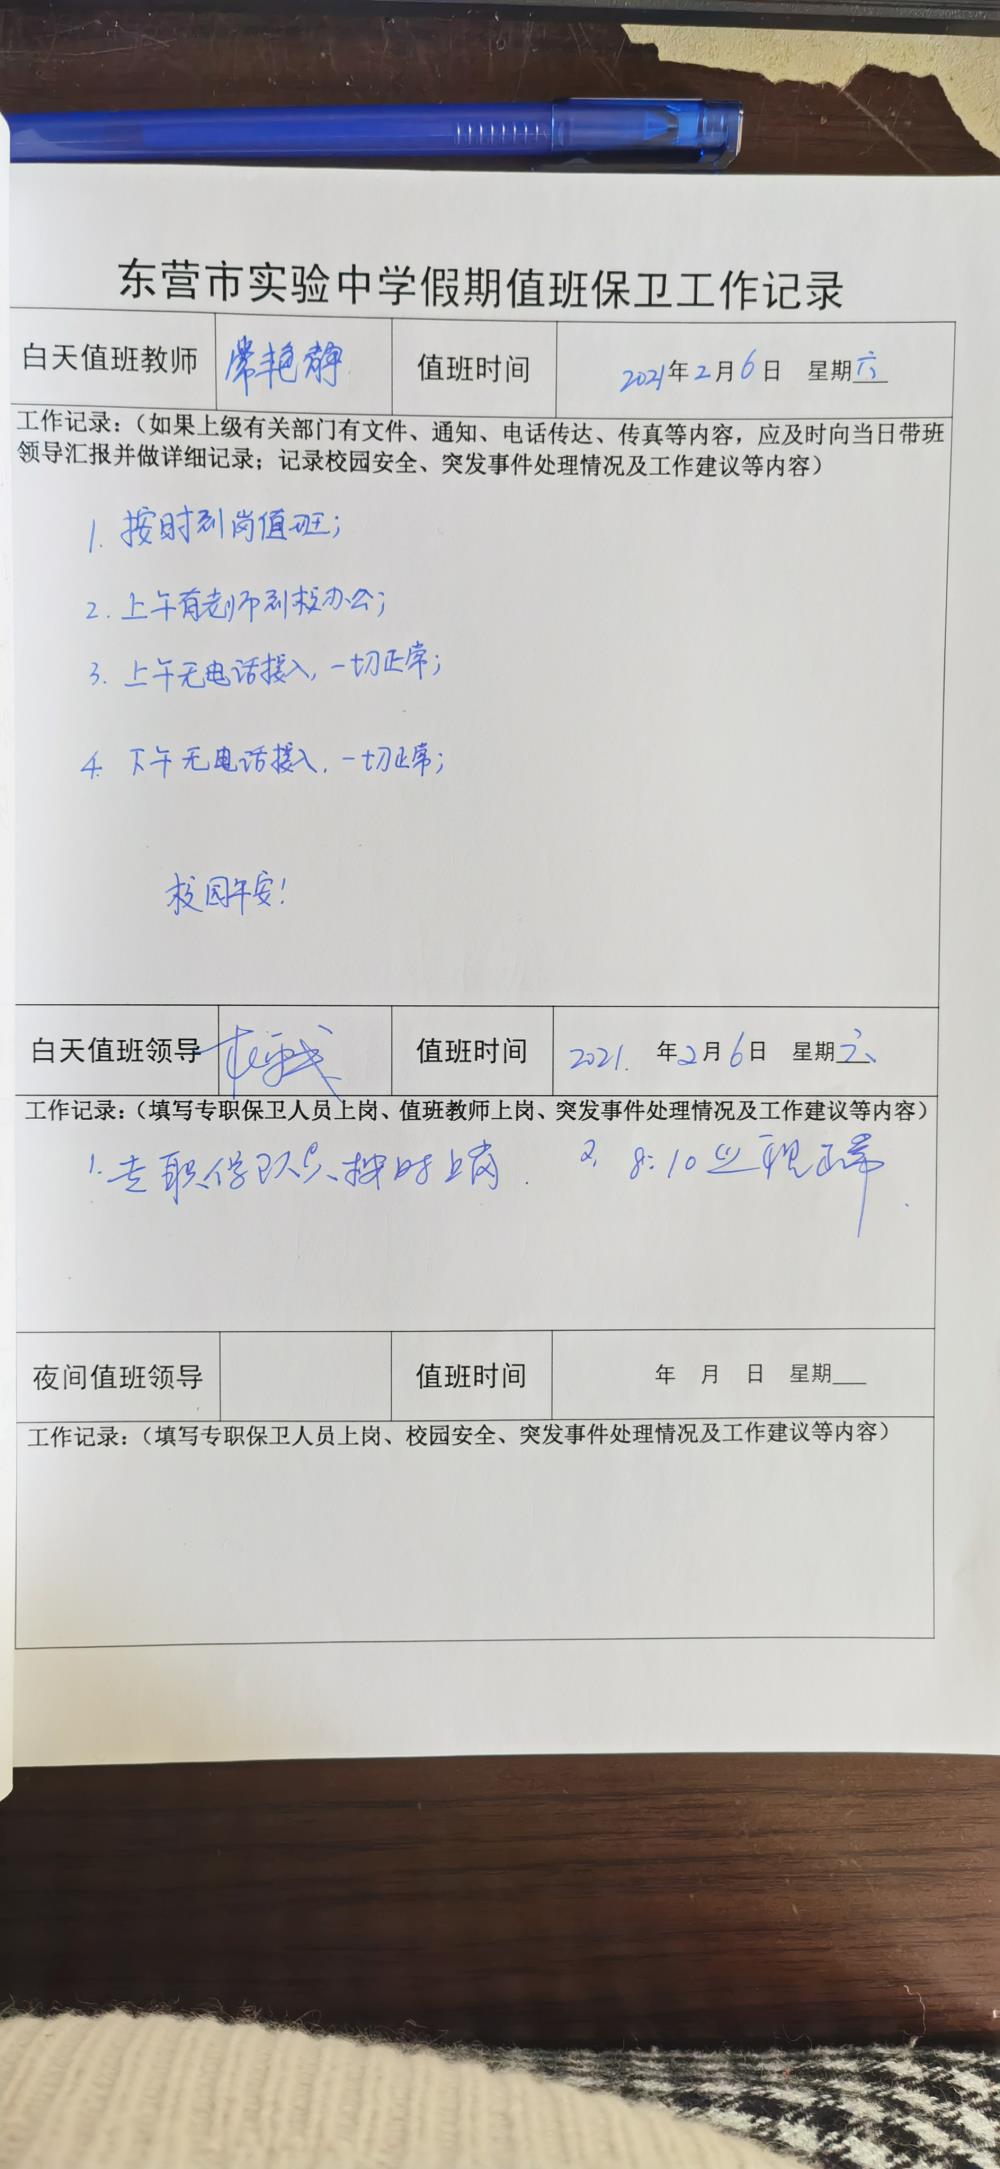 东营市实验中学假期值班保卫工作记录
白天值班教师 常艳静 值班时间 2021年2月6日 星期六
工作记录：（如果上级有关部门有文件、通知、电话传达、传真等内容，应及时向当日带班
领导汇报并做详细记录；记录校园安全、突发事件处理情况及工作建议等内容）
1. 按时到岗值班；
2. 上午有老师到校办公；
3. 上午无电话接入，一切正常；
4. 下午无电话接入，一切正常；
校园平安！
白天值班领导 值班时间 2021. 年2月6日 星期六
工作记录：（填写专职保卫人员上岗、值班教师上岗、突发事件处理情况及工作建议等内容）
1. 专职保卫人员按时上岗. 2. 8:10 巡视正常.
夜间值班领导 值班时间 年 月 日 星期
工作记录：（填写专职保卫人员上岗、校园安全、突发事件处理情况及工作建议等内容）